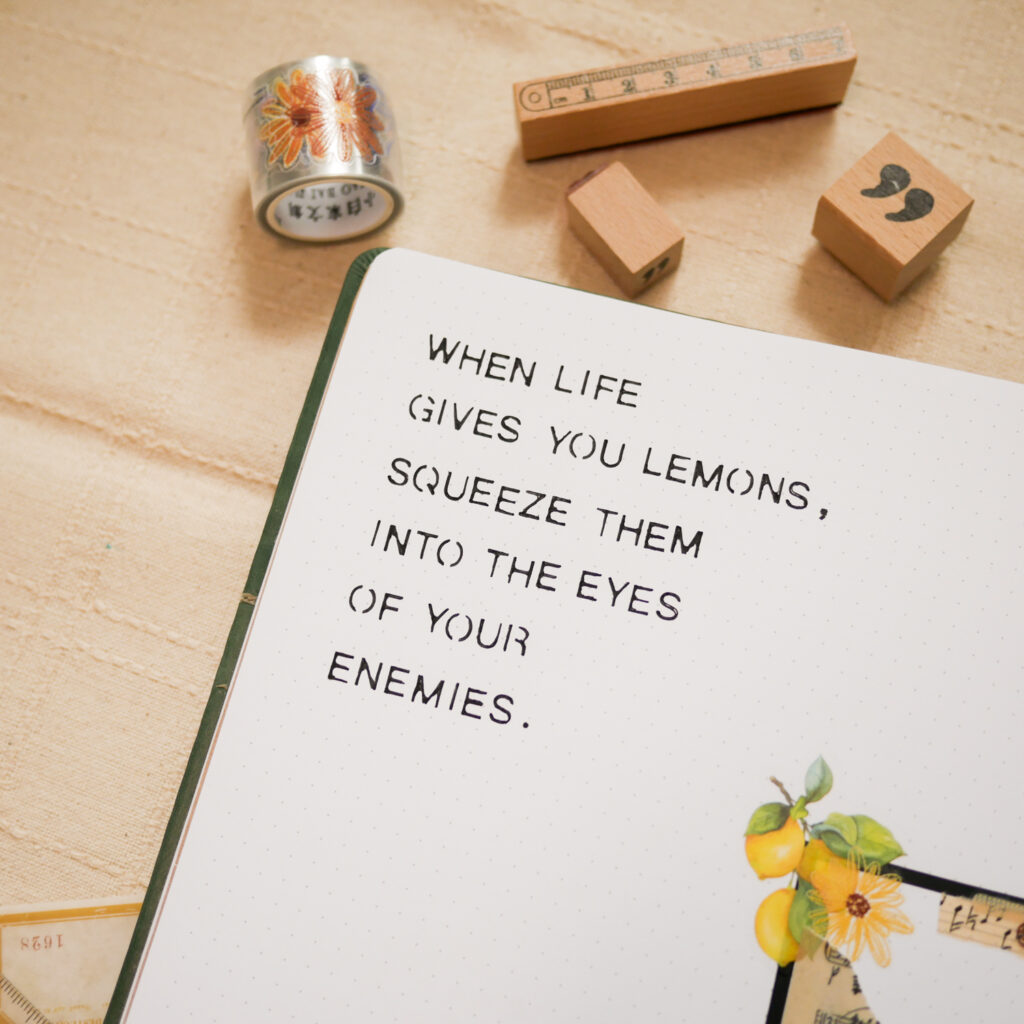 1 2 3 4 5 6
小白家文創
”
WHEN LIFE
GIVES YOU LEMONS,
SQUEEZE THEM
INTO THE EYES
OF YOUR
ENEMIES.
1628